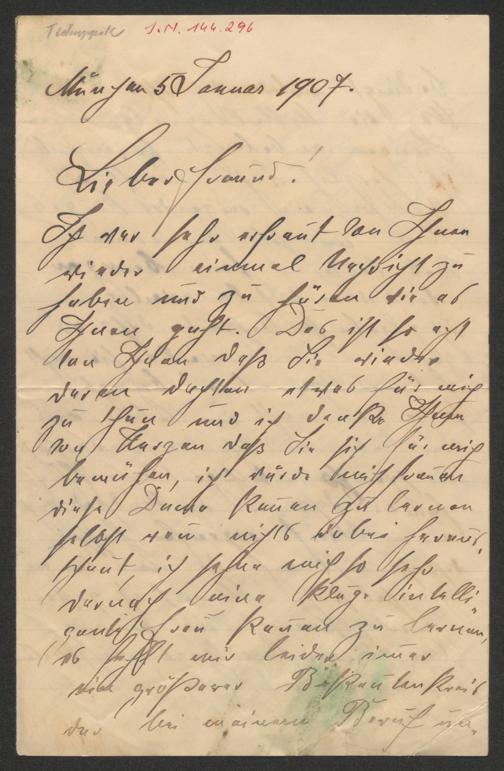 I.N. 144.296
München 5 Januar 1907.
Lieber Freund!
Ich war sehr erfreut von Ihnen
wieder einmal Nachricht zu
haben und zu hören wie es
Ihnen geht. Das ist so echt
von Ihnen daß Sie wieder
daran dachten etwas für mich
zu thun und ich danke Ihnen
von Herzen daß Sie sich für mich
bemühen, ich würde mich freuen
diese Dame kennen zu lernen
selbst wenn nichts dabei heraus
schaut, ich sehne mich so sehr
darnach eine kluge intelli
gente Frau kennen zu lernen,
es fehlt mir leider immer
ein größerer Bekantenkreis
der bei meinem Beruf